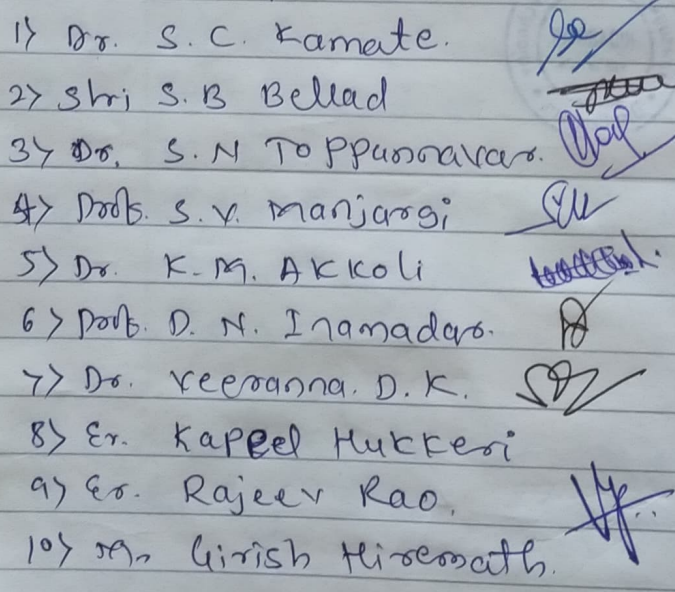 1) Dr. S. C. Kamate.
2) Shri S. B Bellad
3) Dr. S. N Toppannavar.
4) Prof. S. V. Manjargi
5) Dr. K. M. Akkoli
6) Prof. D. N. Inamadar.
7) Dr. Veeranna. D. K.
8) Er. Kapeel Hukkeri
9) Er. Rajeev Rao.
10) Girish Hiremath.